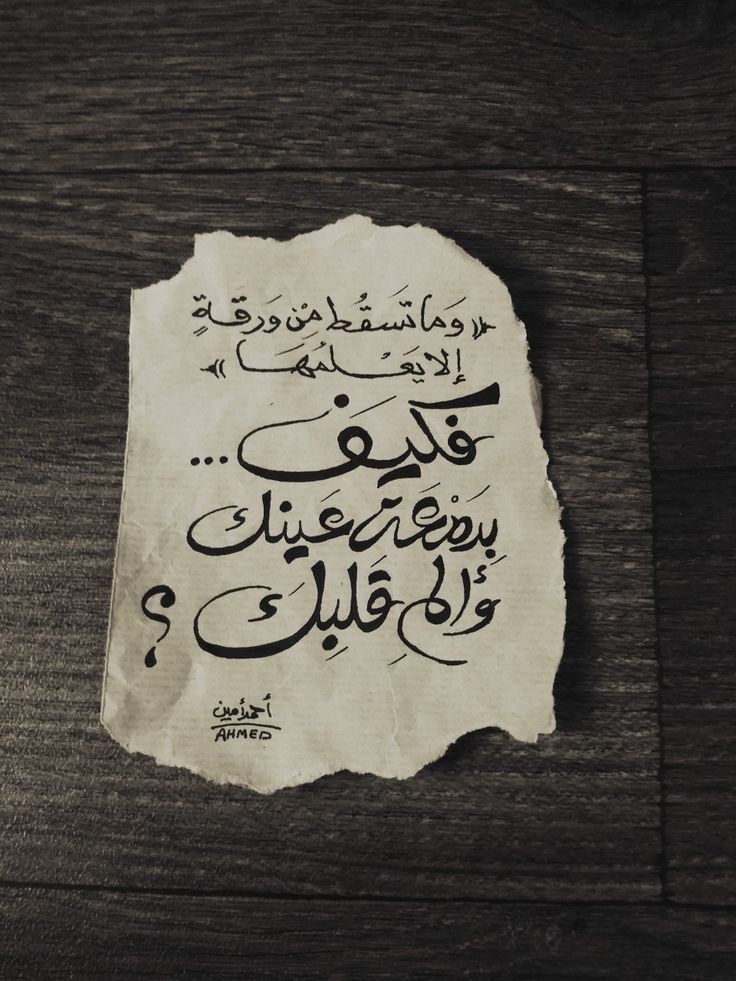 «وَمَا تَسقُط مِنْ وَرَقَةٍ
إلا يَعْلمُهَا»
فكيفَ ...
بدَمْعَة عَينك
وَألم قَلبِكَ ؟
أحمد أمين
AHMED